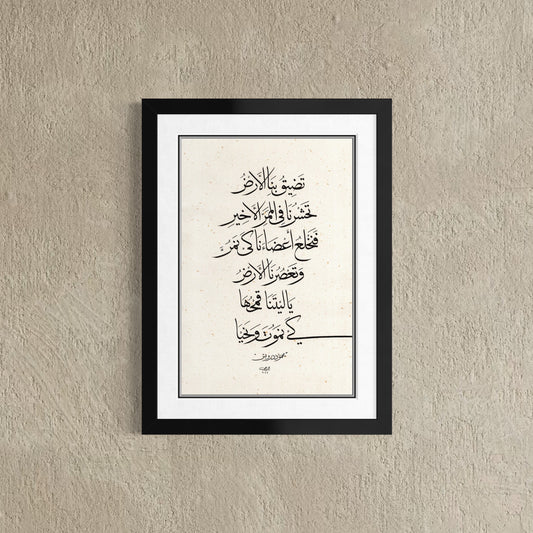 تَضِيقُ بِنَا الأَرْضُ
تَحْشُرُنَا فِي الْمَمَرِّ الأَخِيرِ
فَنَخْلَعُ أَعْضَاءَنَا كَيْ نَمُرَّ
وَتَعْصُرُنَا الأَرْضُ
يَا لَيْتَنَا قَمْحُهَا
كَيْ نَمُوتَ وَنَحْيَا
محمود درويش